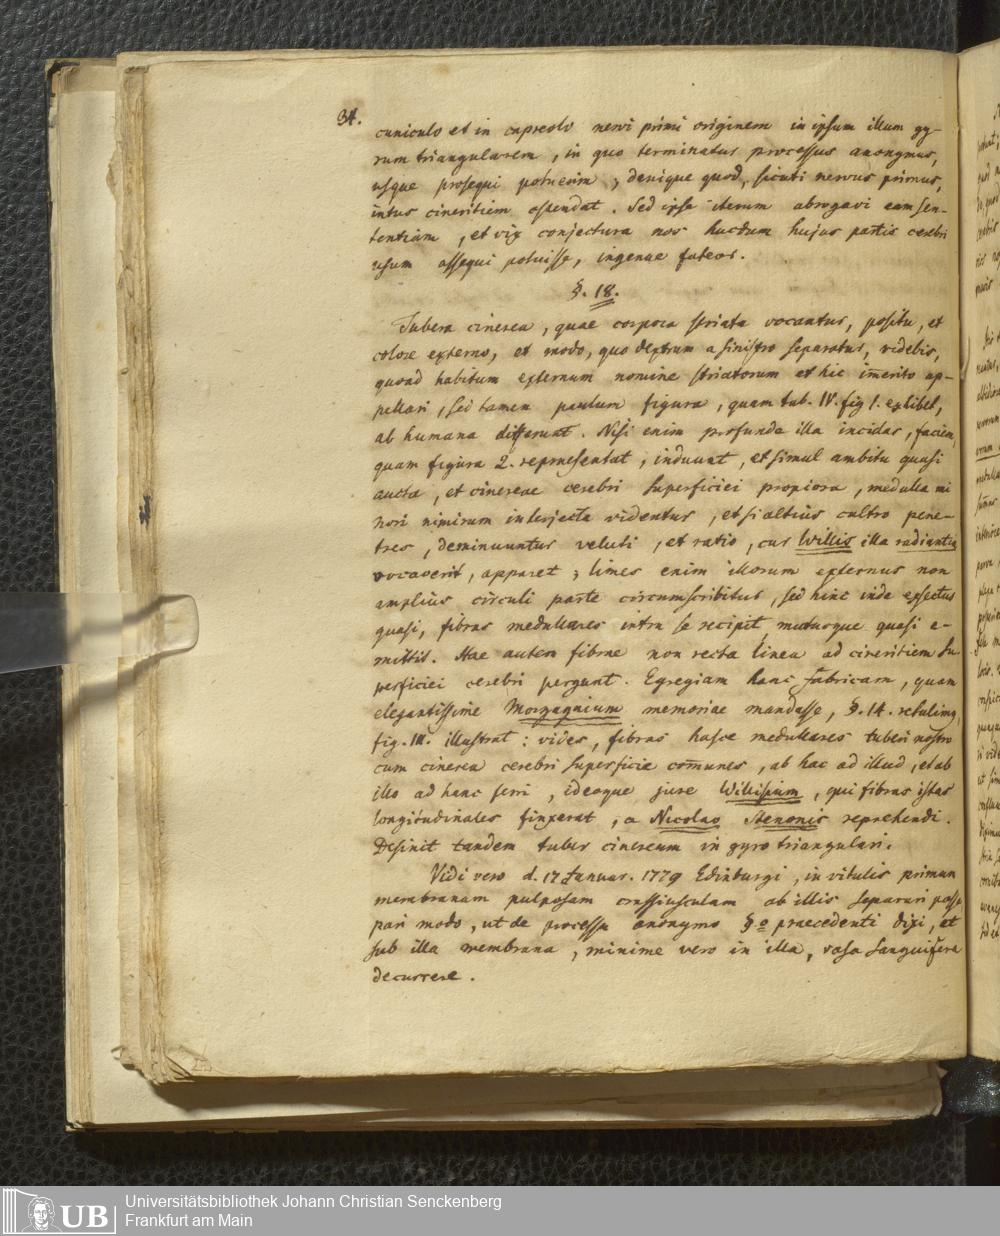 34.
cuniculo et in capreolo nervi primi originem in ipsum illum gy-
rum triangularem, in quo terminatur processus anonymus,
usque prosequi potuerim; denique quod, sicuti nervus primus,
intus cineritiem ostendat. Sed ipse iterum abrogavi eam sen-
tentiam, et vix conjectura nos huc dum hujus partis cerebri
usum assequi potuisse, ingenue fateor.
§. 18.
Tubera cinerea, quae corpora striata vocantur, positu, et
colore externo, et modo, quo dextrum a sinistro separatur, videbis,
quoad habitum externum nomine striatorum et hic im̄erito ap-
pellari, sed tamen paulum figura, quam tab. IV. fig 1. exhibet,
ab humana differunt. Nisi enim profunde illa incidas, faciem,
quam figura 2. repraesentat, induunt, et simul ambitu quasi
aucta, et cinereae cerebri superficiei propiora, medulla mi
nori nimirum interjecta videntur, et si altius cultro pene-
tres, deminuuntur veluti, et ratio, cur Willis illa radiantia
vocaverit, apparet; limes enim illorum externus non
amplius circuli parte circumscribitur, sed hinc inde exsectus
quasi, fibras medullares intra se recipit, mutuoque quasi e-
mittit. Hae autem fibrae non recta linea ad cineritiem su-
perficiei cerebri pergunt. Egregiam hanc fabricam, quam
elegantissime Morgagnium memoriae mandasse, §. 14. retulimus,
fig. III. illustrat: vides, fibras hasce medullares tuberi nostro
cum cinerea cerebri superficie com̄unes, ab hac ad illud, et ab
illo ad hanc ferri, ideoque jure Willisium, qui fibras istas
longitudinales finxerat, a Nicolao Stenonis reprehendi.
Desinit tandem tuber cinereum in gyro triangulari.
Vidi vero d. 17 Januar. 1779 Edinburgi, in vitulis primum
membranam pulposam crassiusculam ab illis separari posse
pari modo, ut de processu anonymo §o praecedenti dixi, et
sub illa membrana, minime vero in illa, vasa sanguifera
decurrere.
UB
Universitätsbibliothek Johann Christian Senckenberg
Frankfurt am Main